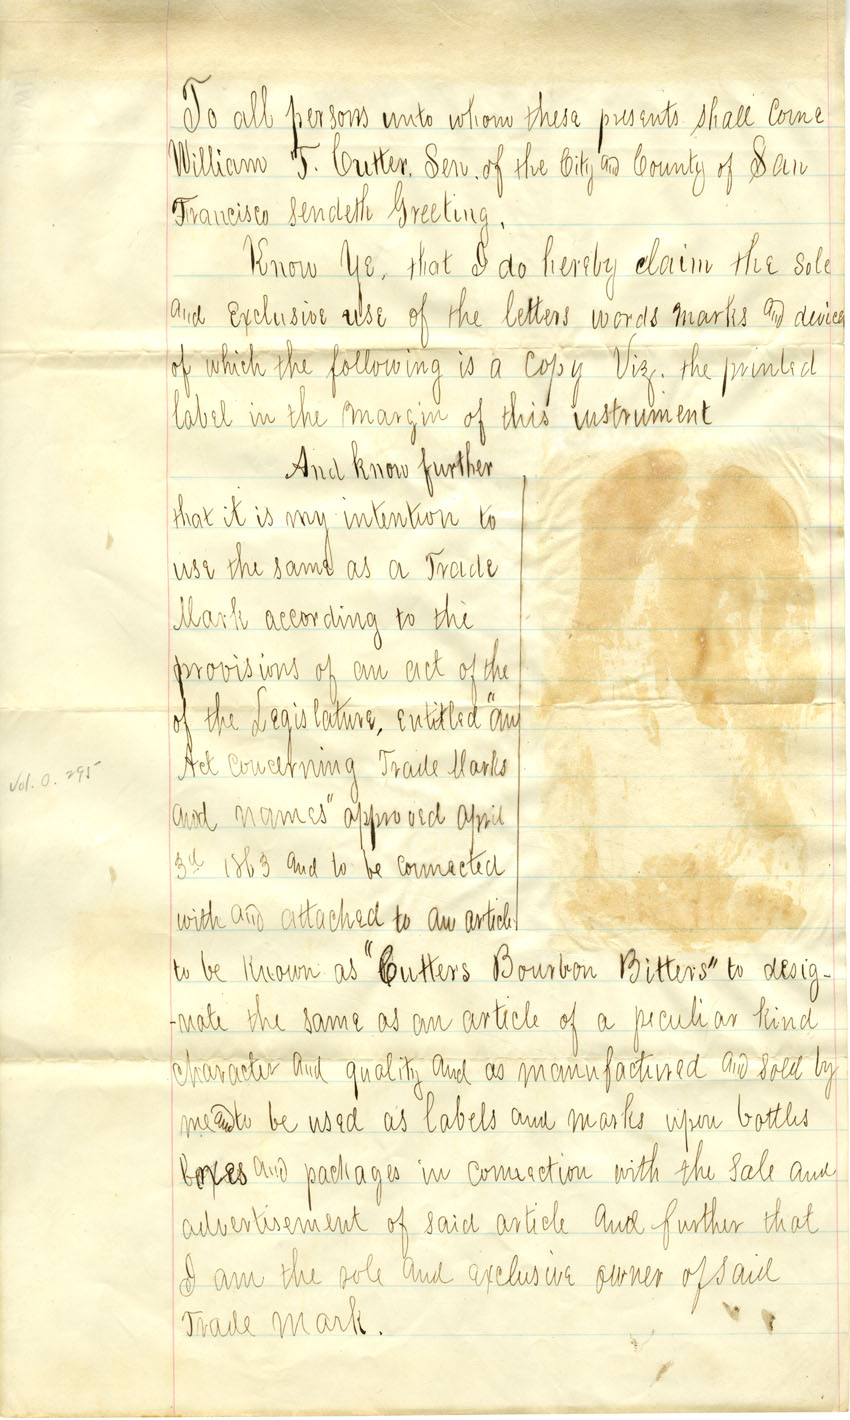 To all persons unto whom these presents shall come
William T. Cutter, Sen. of the City and County of San
Francisco Sendeth Greeting,
Know Ye, that I do hereby claim the sole
and Exclusive use of the letters words marks and devices
of which the following is a copy Viz. the printed
label in the margin of this instrument
And know further
that it is my intention to
use the same as a Trade
Mark according to the
provisions of an act of the
of the Legislature, entitled "An
Act Concerning Trade Marks
and names" approved April
3d 1863 and to be connected
with and attached to an article
to be known as "Cutters Bourbon Bitters" to desig-
-nate the same as an article of a peculiar kind
character and quality and as manufactured and sold by
me and to be used as labels and marks upon bottles
boxes and packages in connection with the sale and
advertisement of said article and further that
I am the sole and exclusive owner of said
Trade Mark.
Vol. 0. 295